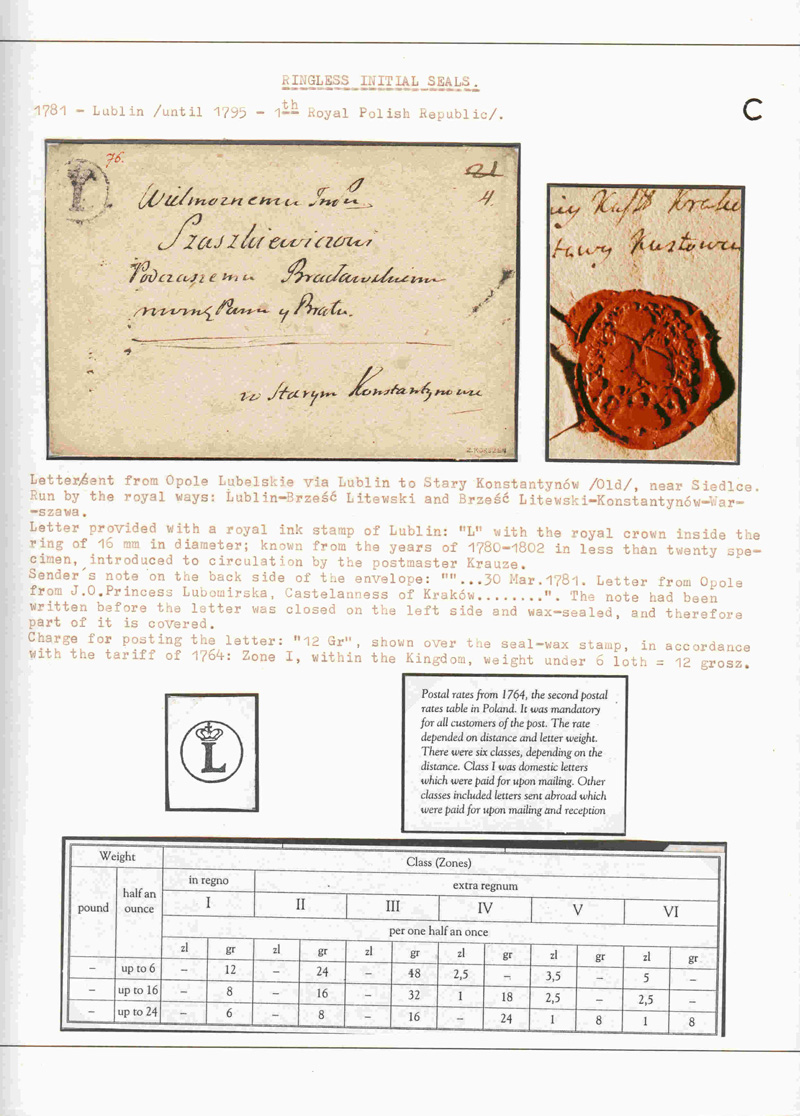 RINGLESS INITIAL SEALS.
1781 - Lublin /until 1795 - 1th Royal Polish Republic/.
C
76.
L
21
4.
Wielmożnemu
Szaszkiewiczowi
Podczaszemu Bracławskiemu
Panu y Bratu.
w Starym Konstantynowie
Krako
Letter/sent from Opole Lubelskie via Lublin to Stary Konstantynów /Old/, near Siedlce.
Run by the royal ways: Lublin-Brześć Litewski and Brześć Litewski-Konstantynów-War-
-szawa.
Letter provided with a royal ink stamp of Lublin: "L" with the royal crown inside the
ring of 16 mm in diameter; known from the years of 1780-1802 in less than twenty spe-
cimen, introduced to circulation by the postmaster Krauze.
Sender's note on the back side of the envelope: ""...30 Mar.1781. Letter from Opole
from J.O.Princess Lubomirska, Castelanness of Kraków........". The note had been
written before the letter was closed on the left side and wax-sealed, and therefore
part of it is covered.
Charge for posting the letter: "12 Gr", shown over the seal-wax stamp, in accordance
with the tariff of 1764: Zone I, within the Kingdom, weight under 6 loth = 12 grosz.
L
Postal rates from 1764, the second postal
rates table in Poland. It was mandatory
for all customers of the post. The rate
depended on distance and letter weight.
There were six classes, depending on the
distance. Class I was domestic letters
which were paid for upon mailing. Other
classes included letters sent abroad which
were paid for upon mailing and reception
Weight Class (Zones)
in regno extra regnum
pound half an ounce I II III IV V VI
per one half an once
zl gr zl gr zl gr zl gr zl gr zl gr
– up to 6 – 12 – 24 – 48 2,5 – 3,5 – 5 –
– up to 16 – 8 – 16 – 32 1 18 2,5 – 2,5 –
– up to 24 – 6 – 8 – 16 – 24 1 8 1 8